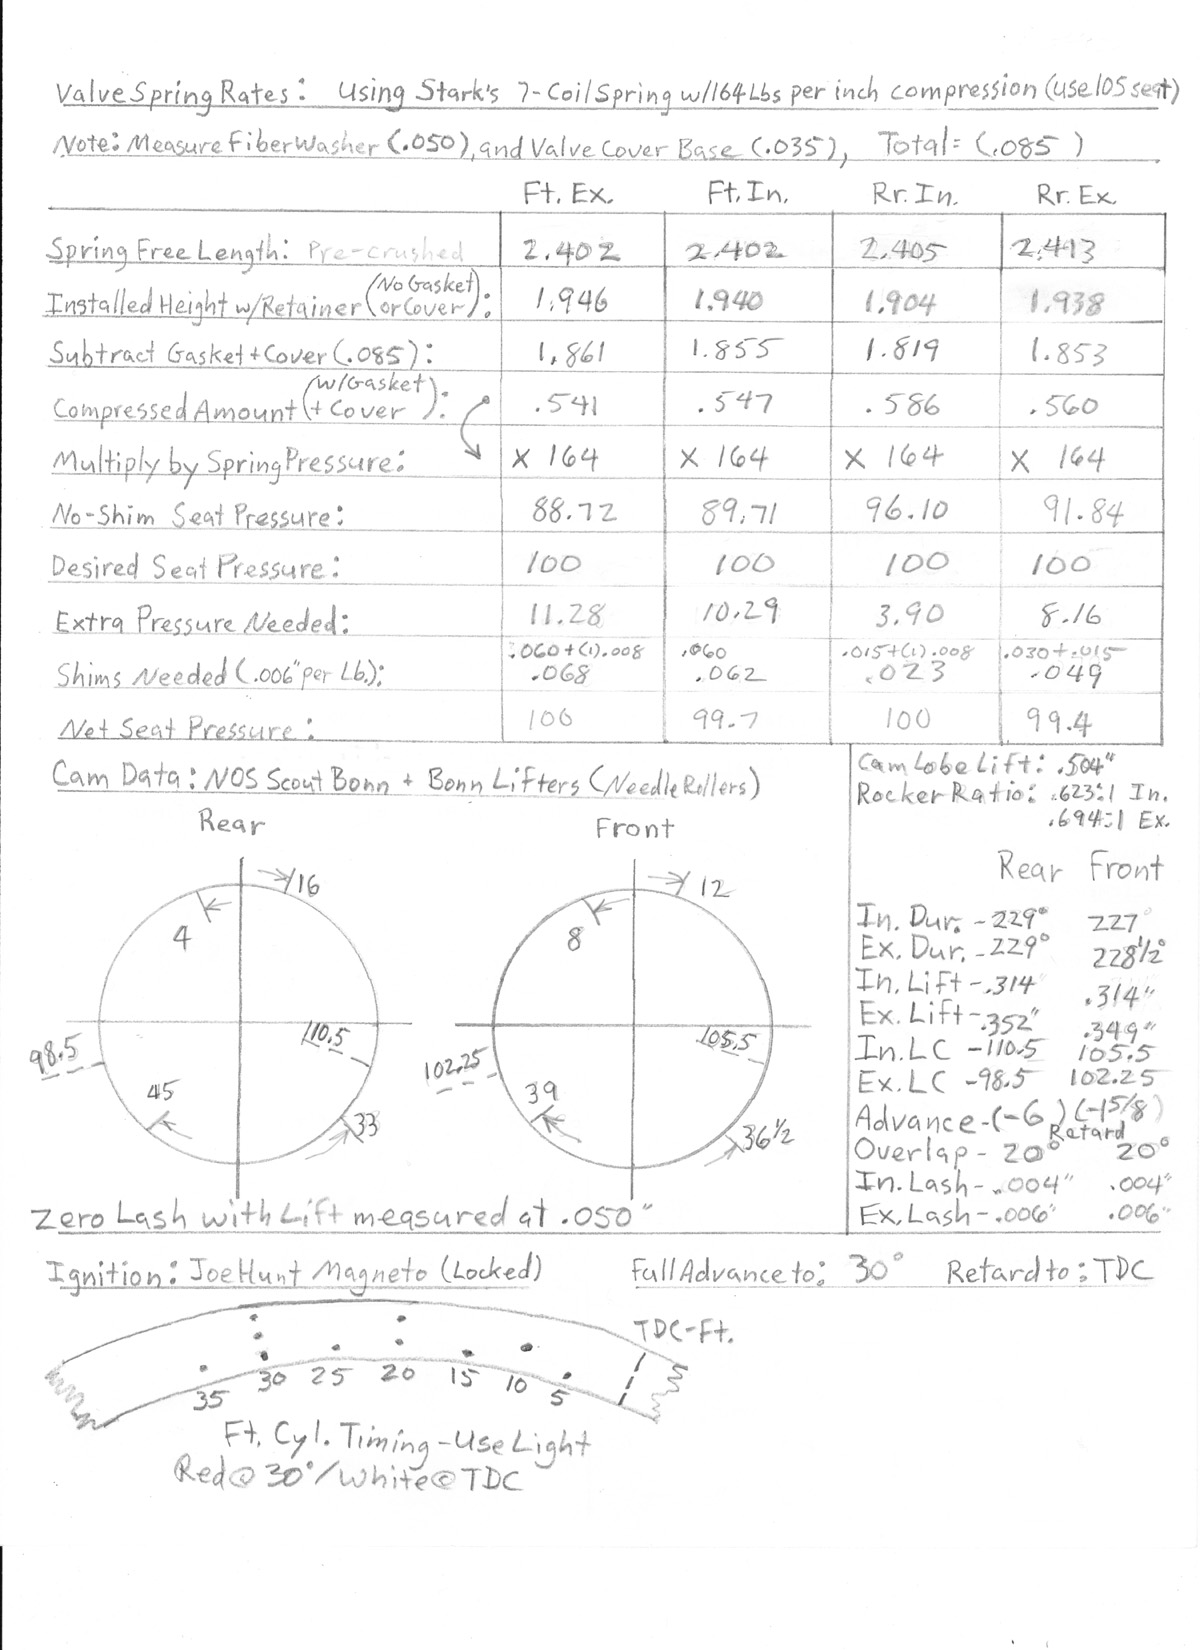 Valve Spring Rates: Using Stark's 7-Coil Spring w/164 Lbs per inch compression (use 105 seat)
Note: Measure Fiber Washer (.050), and Valve Cover Base (.035), Total= (.085 )
Ft. Ex. Ft. In. Rr. In. Rr. Ex.
Spring Free Length: Pre-crushed 2.402 2.402 2.405 2.413
Installed Height w/Retainer (No Gasket or Cover): 1.946 1.940 1.904 1.938
Subtract Gasket + Cover (.085): 1.861 1.855 1.819 1.853
Compressed Amount (w/Gasket + Cover): .541 .547 .586 .560
Multiply by Spring Pressure: X 164 X 164 X 164 X 164
No-Shim Seat Pressure: 88.72 89.71 96.10 91.84
Desired Seat Pressure: 100 100 100 100
Extra Pressure Needed: 11.28 10.29 3.90 8.16
.060+(1).008 .060 .015+(1).008 .030+.015
Shims Needed (.006" per Lb.): .068 .062 .023 .049
Net Seat Pressure: 100 99.7 100 99.4
Cam Data: NOS Scout Bonn + Bonn Lifters (Needle Rollers)
Rear
16
4
110.5
98.5
45
33
Front
12
8
105.5
102.25
39
36 1/2
Zero Lash with Lift measured at .050"
Cam Lobe Lift: .504"
Rocker Ratio: .623:1 In.
.694:1 Ex.
Rear Front
In. Dur. - 229° 227°
Ex. Dur. - 229° 228 1/2°
In. Lift - .314" .314"
Ex. Lift - .352" .349"
In. LC - 110.5 105.5
Ex. LC - 98.5 102.25
Advance - (-6) (-1 5/8)
Retard
Overlap - 20° 20°
In. Lash - .004" .004"
Ex. Lash - .006" .006"
Ignition: Joe Hunt Magneto (Locked) Full Advance to: 30° Retard to: TDC
TDC-Ft.
35 30 25 20 15 10 5
Ft. Cyl. Timing - Use Light
Red @ 30° / White @ TDC